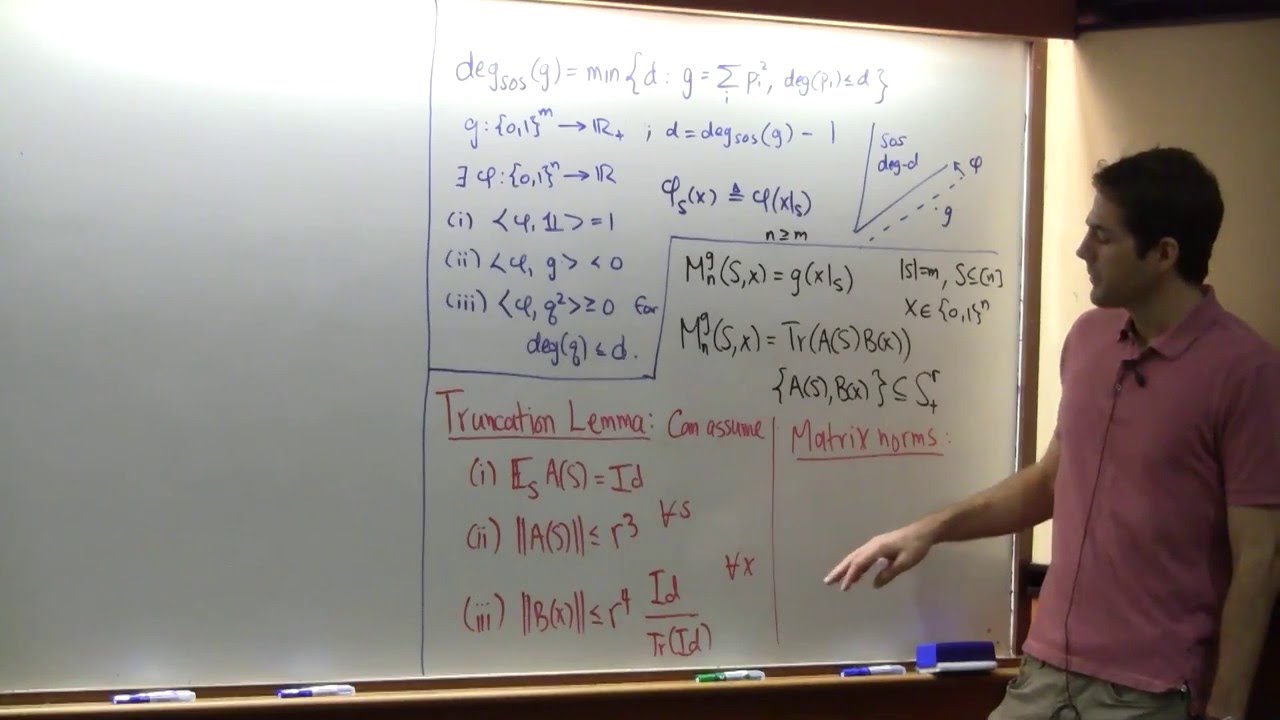 deg_sos(g) = min { d : g = Σ_i p_i², deg(p_i) ≤ d }
g : {0,1}^m → ℝ₊ ; d = deg_sos(g) − 1
∃ φ : {0,1}^n → ℝ
φ_S(x) ≜ φ(x|_S)
(i) ⟨φ, 𝟙⟩ = 1
(ii) ⟨φ, g⟩ < 0
(iii) ⟨φ, q²⟩ ≥ 0 for
deg(q) ≤ d.
sos
deg-d
φ
g
n ≥ m
M_n^g(S,x) = g(x|_S)
|S|=m, S⊆[n]
x ∈ {0,1}^n
M_n^g(S,x) = Tr(A(S)B(x))
{A(S), B(x)} ⊆ S_+^r
Truncation Lemma: Can assume
(i) 𝔼_S A(S) = Id
(ii) ||A(S)|| ≤ r³ ∀S
(iii) ||B(x)|| ≤ r⁴ Id/Tr(Id) ∀x
Matrix norms: